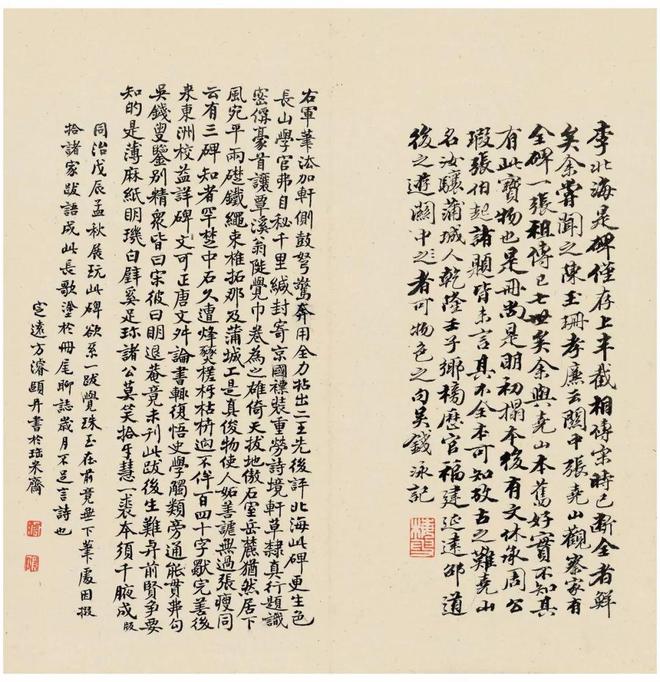 李北海是碑僅存上半截相傳宋時已斷全者鮮
矣余嘗聞之陳玉珊孝廉云關中張堯山觀察家有
全碑一張祖傳已七世矣余與堯山本舊好實不知其
有此寶物也是冊尚是明初搨本後有文休承周公
瑕張伯起諸題皆未言其不全本可知故古之難堯山
名汝驤蒲城人乾隆壬子鄉榜歷官福建延建邵道
後之遊關中之者可物色之句吳錢泳記
右軍筆法加軒側鼓努驚奔用全力拈出二王先後評北海此碑更生色
長山學官弗自秘千里緘封寄京國標裝重勞詩境軒草隸真行題識
密僎豪首讓覃溪翁陡覺巾卷為之確倚天拔地傲石室岳麓猶然居下
風宛平兩礎鐵繩束椎拓那及蒲城工是真俊物使人妬善謔無過張瘦同
云有三碑知者罕楚中石久遭烽燹槎枒枯枿迥不侔百四十字歎完善後
來東洲校益詳碑文可正唐文舛論書輒復悟史學觸類旁通能貫弗勾
吳錢叟鑒別精衆皆曰宋彼曰明退菴竟未刊此跋後生難與前賢爭要
知的是薄麻紙明璣白璧奚足珎諸公莫笑拾牙慧一裘本須千腋成
同治戊辰孟秋展玩此碑欲系一跋覺珠玉在前竟無下筆處因掇
拾諸家跋語成此長歌塗於冊尾聊誌歲月不足言詩也
定遠方濬頤并書於珤米齋